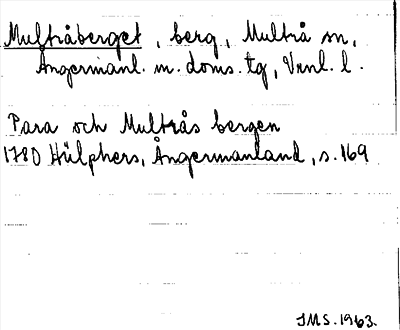 Multråberget, berg, Multrå sn,
Ångermanl. m. doms. tg, Vnnl. l.
Para och Multrås bergen
1780 Hülphers, Ångermanland, s. 169
IMS. 1963.